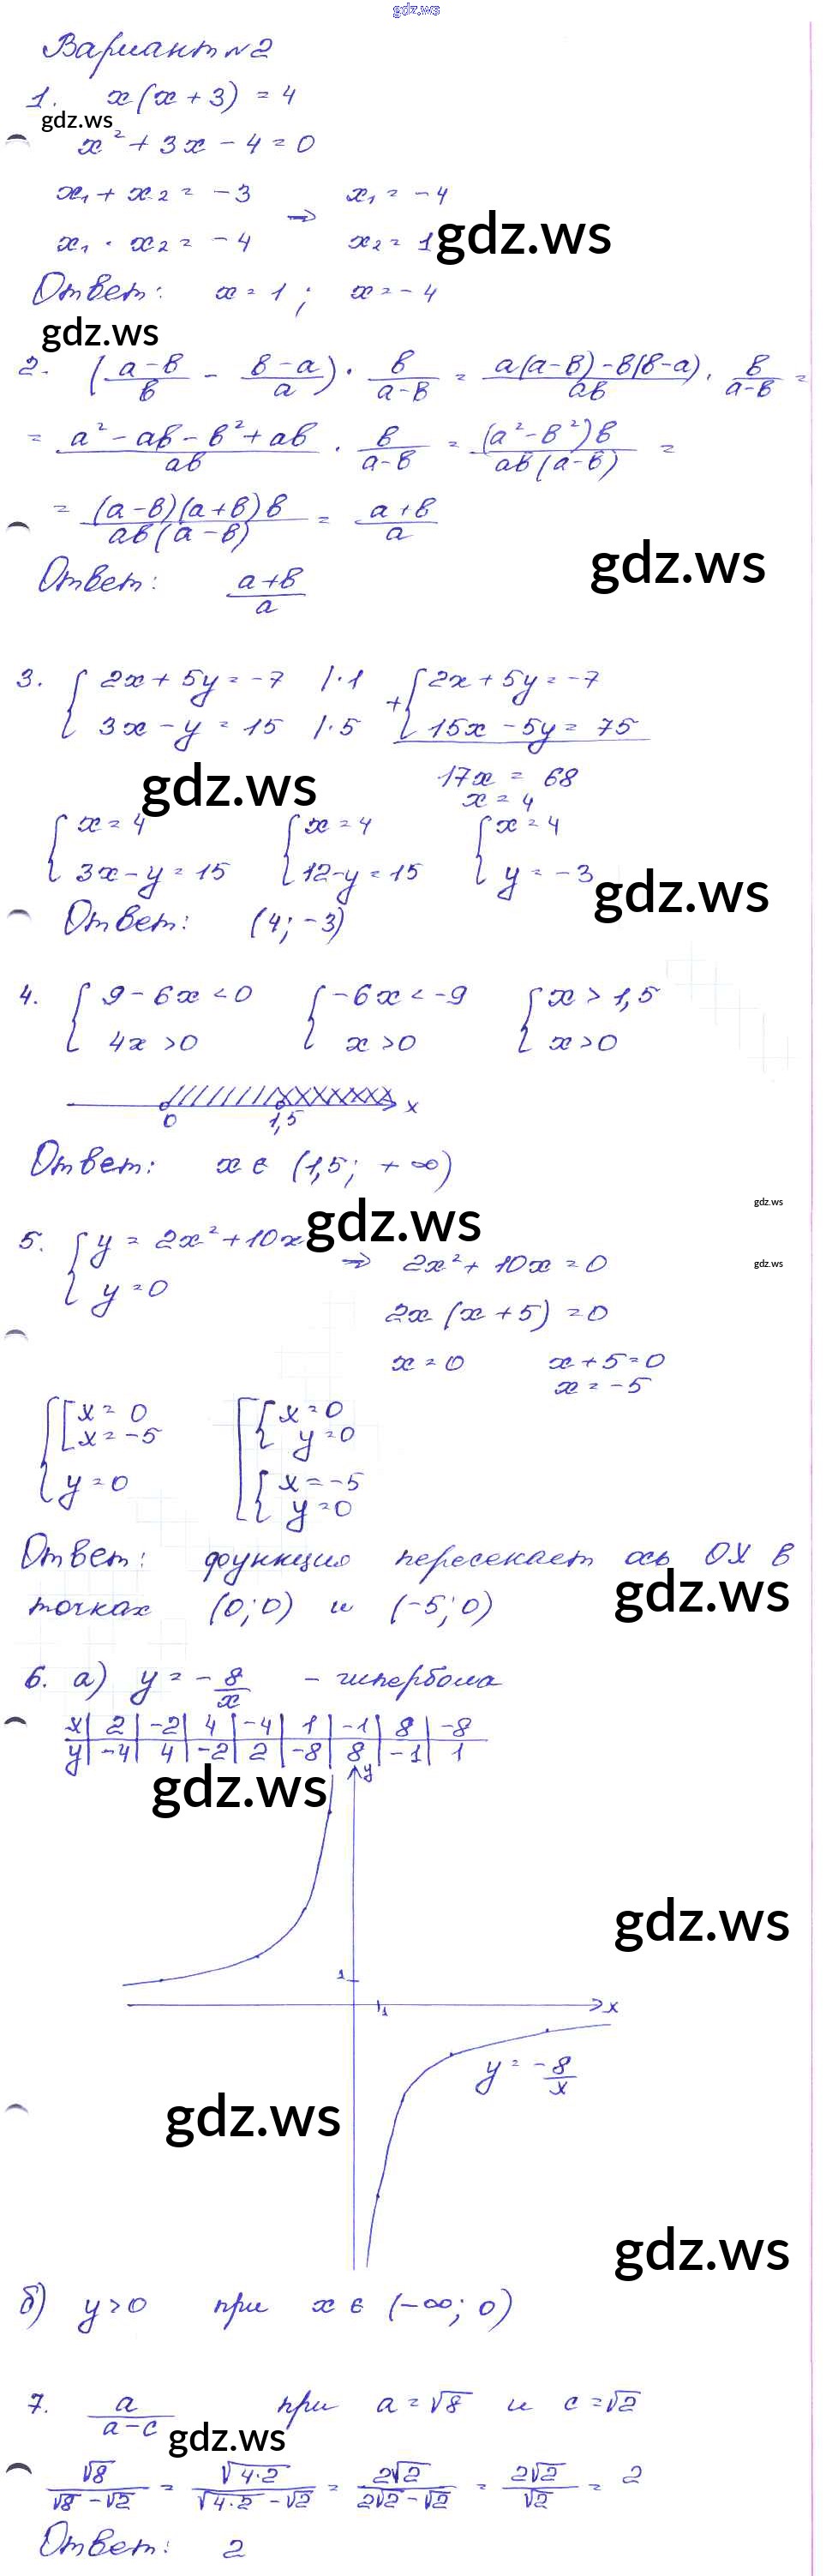 gdz.ws
Вариант №2
1. x(x+3) = 4
gdz.ws
x² + 3x - 4 = 0
x₁ + x₂ = -3 ⇒ x₁ = -4
x₁ · x₂ = -4 x₂ = 1
gdz.ws
Ответ: x = 1; x = -4
gdz.ws
2. ((a-b)/b - (b-a)/a) · b/(a-b) = (a(a-b)-b(b-a))/(ab) · b/(a-b) =
= (a²-ab-b²+ab)/(ab) · b/(a-b) = ((a²-b²)b)/(ab(a-b)) =
= ((a-b)(a+b)b)/(ab(a-b)) = (a+b)/a
gdz.ws
Ответ: (a+b)/a
3. { 2x + 5y = -7 |·1 + { 2x + 5y = -7
3x - y = 15 |·5 15x - 5y = 75
17x = 68
gdz.ws
x = 4
{ x = 4 { x = 4 { x = 4
3x - y = 15 12 - y = 15 y = -3
gdz.ws
Ответ: (4; -3)
4. { 9 - 6x < 0 { -6x < -9 { x > 1,5
4x > 0 x > 0 x > 0
0 1,5 x
Ответ: x ∈ (1,5; +∞)
gdz.ws
gdz.ws
5. { y = 2x² + 10x ⇒ 2x² + 10x = 0
gdz.ws
y = 0
2x(x+5) = 0
x = 0 x + 5 = 0
x = -5
{ [ x = 0 [ { x = 0
x = -5 y = 0
y = 0 { x = -5
y = 0
Ответ: функция пересекает ось OX в
gdz.ws
точках (0; 0) и (-5; 0)
6. а) y = -8/x - гипербола
x | 2 | -2 | 4 | -4 | 1 | -1 | 8 | -8
y | -4 | 4 | -2 | 2 | -8 | 8 | -1 | 1
gdz.ws
y
gdz.ws
1
1 x
y = -8/x
gdz.ws
gdz.ws
б) y > 0 при x ∈ (-∞; 0)
7. a/(a-c) при a = √8 и c = √2
gdz.ws
√8/(√8-√2) = √(4·2)/(√(4·2)-√2) = 2√2/(2√2-√2) = 2√2/√2 = 2
Ответ: 2